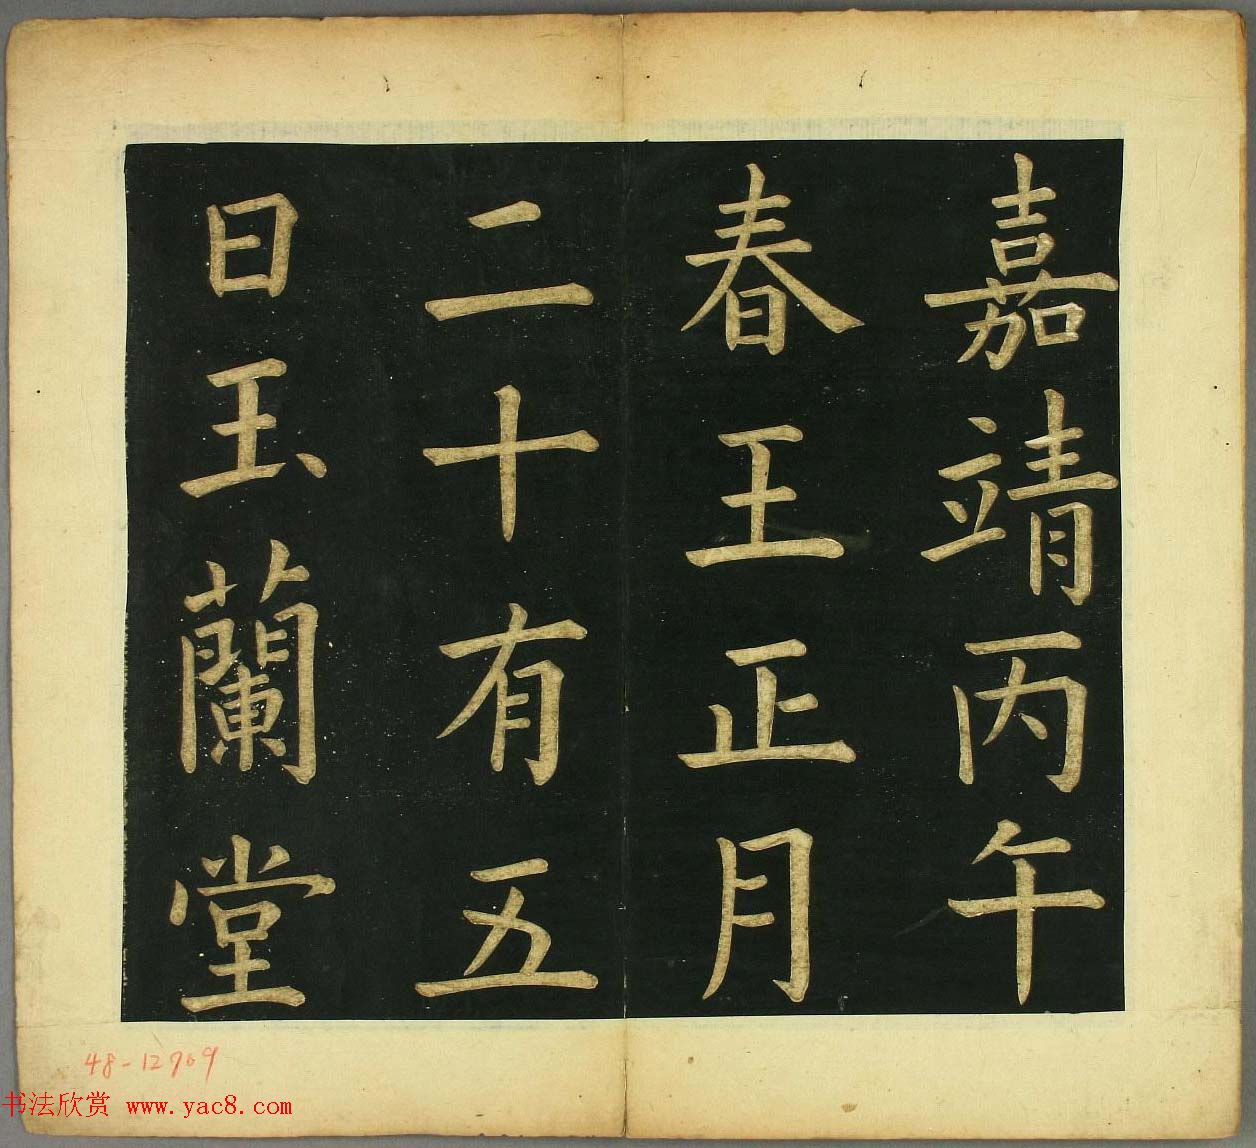 嘉靖丙午
春王正月
二十有五
日玉蘭堂
48-12769
书法欣赏 www.yac8.com